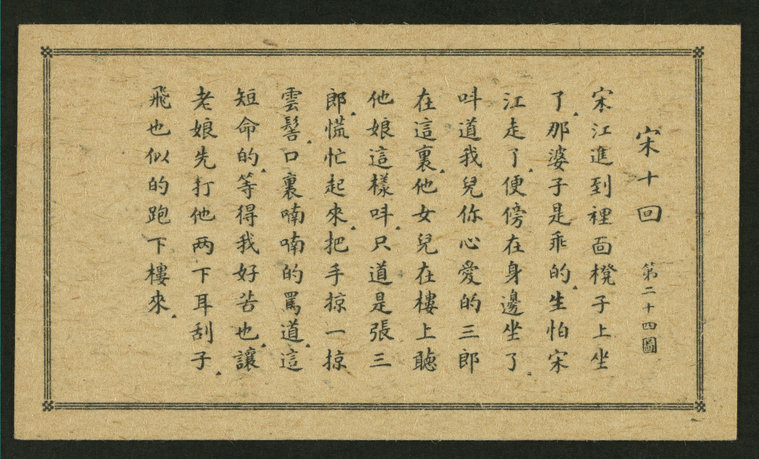 宋十回 第二十四圖
宋江進到裡面櫈子上坐
了、那婆子是乖的、生怕宋
江走了、便傍在身邊坐了、
呌道我兒你心愛的三郎
在這裏、他女兒在樓上聽
他娘這樣呌、只道是張三
郎、慌忙起來、把手掠一掠
雲髻、口裏喃喃的罵道、這
短命的、等得我好苦也、讓
老娘先打他两下耳刮子、
飛也似的跑下樓來、